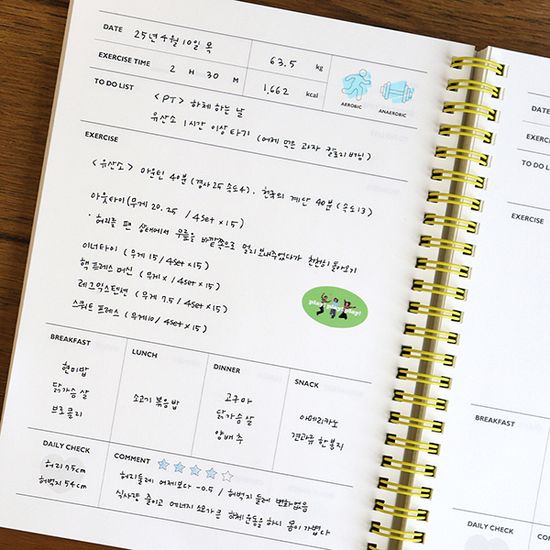 DATE 25년 4월 10일 목
63.5 kg
EXERCISE TIME 2 H 30 M
1,662 kcal
AEROBIC ANAEROBIC
TO DO LIST
<PT> 하체 하는 날
유산소 1시간 이상 타기 (어제 먹은 과자 칼로리 버닝)
EXERCISE
<유산소> 마운틴 40분 (경사 25 속도 4), 천국의 계단 40분 (속도 13)
아웃타이 (무게 20. 25 / 4set × 15)
· 허리를 편 상태에서 무릎을 바깥쪽으로 멀리 보내주었다가 천천히 돌아오기
이너타이 (무게 15 / 4set × 15)
핵 프레스 머신 (무게 × / 4set × 15)
레그익스텐션 (무게 7.5 / 4set × 15)
스쿼트 프레스 (무게 10 / 4set × 15)
play! play! play!
BREAKFAST
현미밥
닭가슴살
브로콜리
LUNCH
소고기 볶음밥
DINNER
고구마
닭가슴살
양배추
SNACK
아메리카노
견과류 한 봉지
DAILY CHECK
허리 75cm
허벅지 54cm
COMMENT
허리둘레 어제보다 -0.5 / 허벅지 둘레 변화없음
식사량 줄이고 에너지 소모가 큰 하체 운동을 하니 몸이 가볍다
DATE
EXERCISE
TO DO LIST
EXERCISE
BREAKFAST
DAILY CHECK